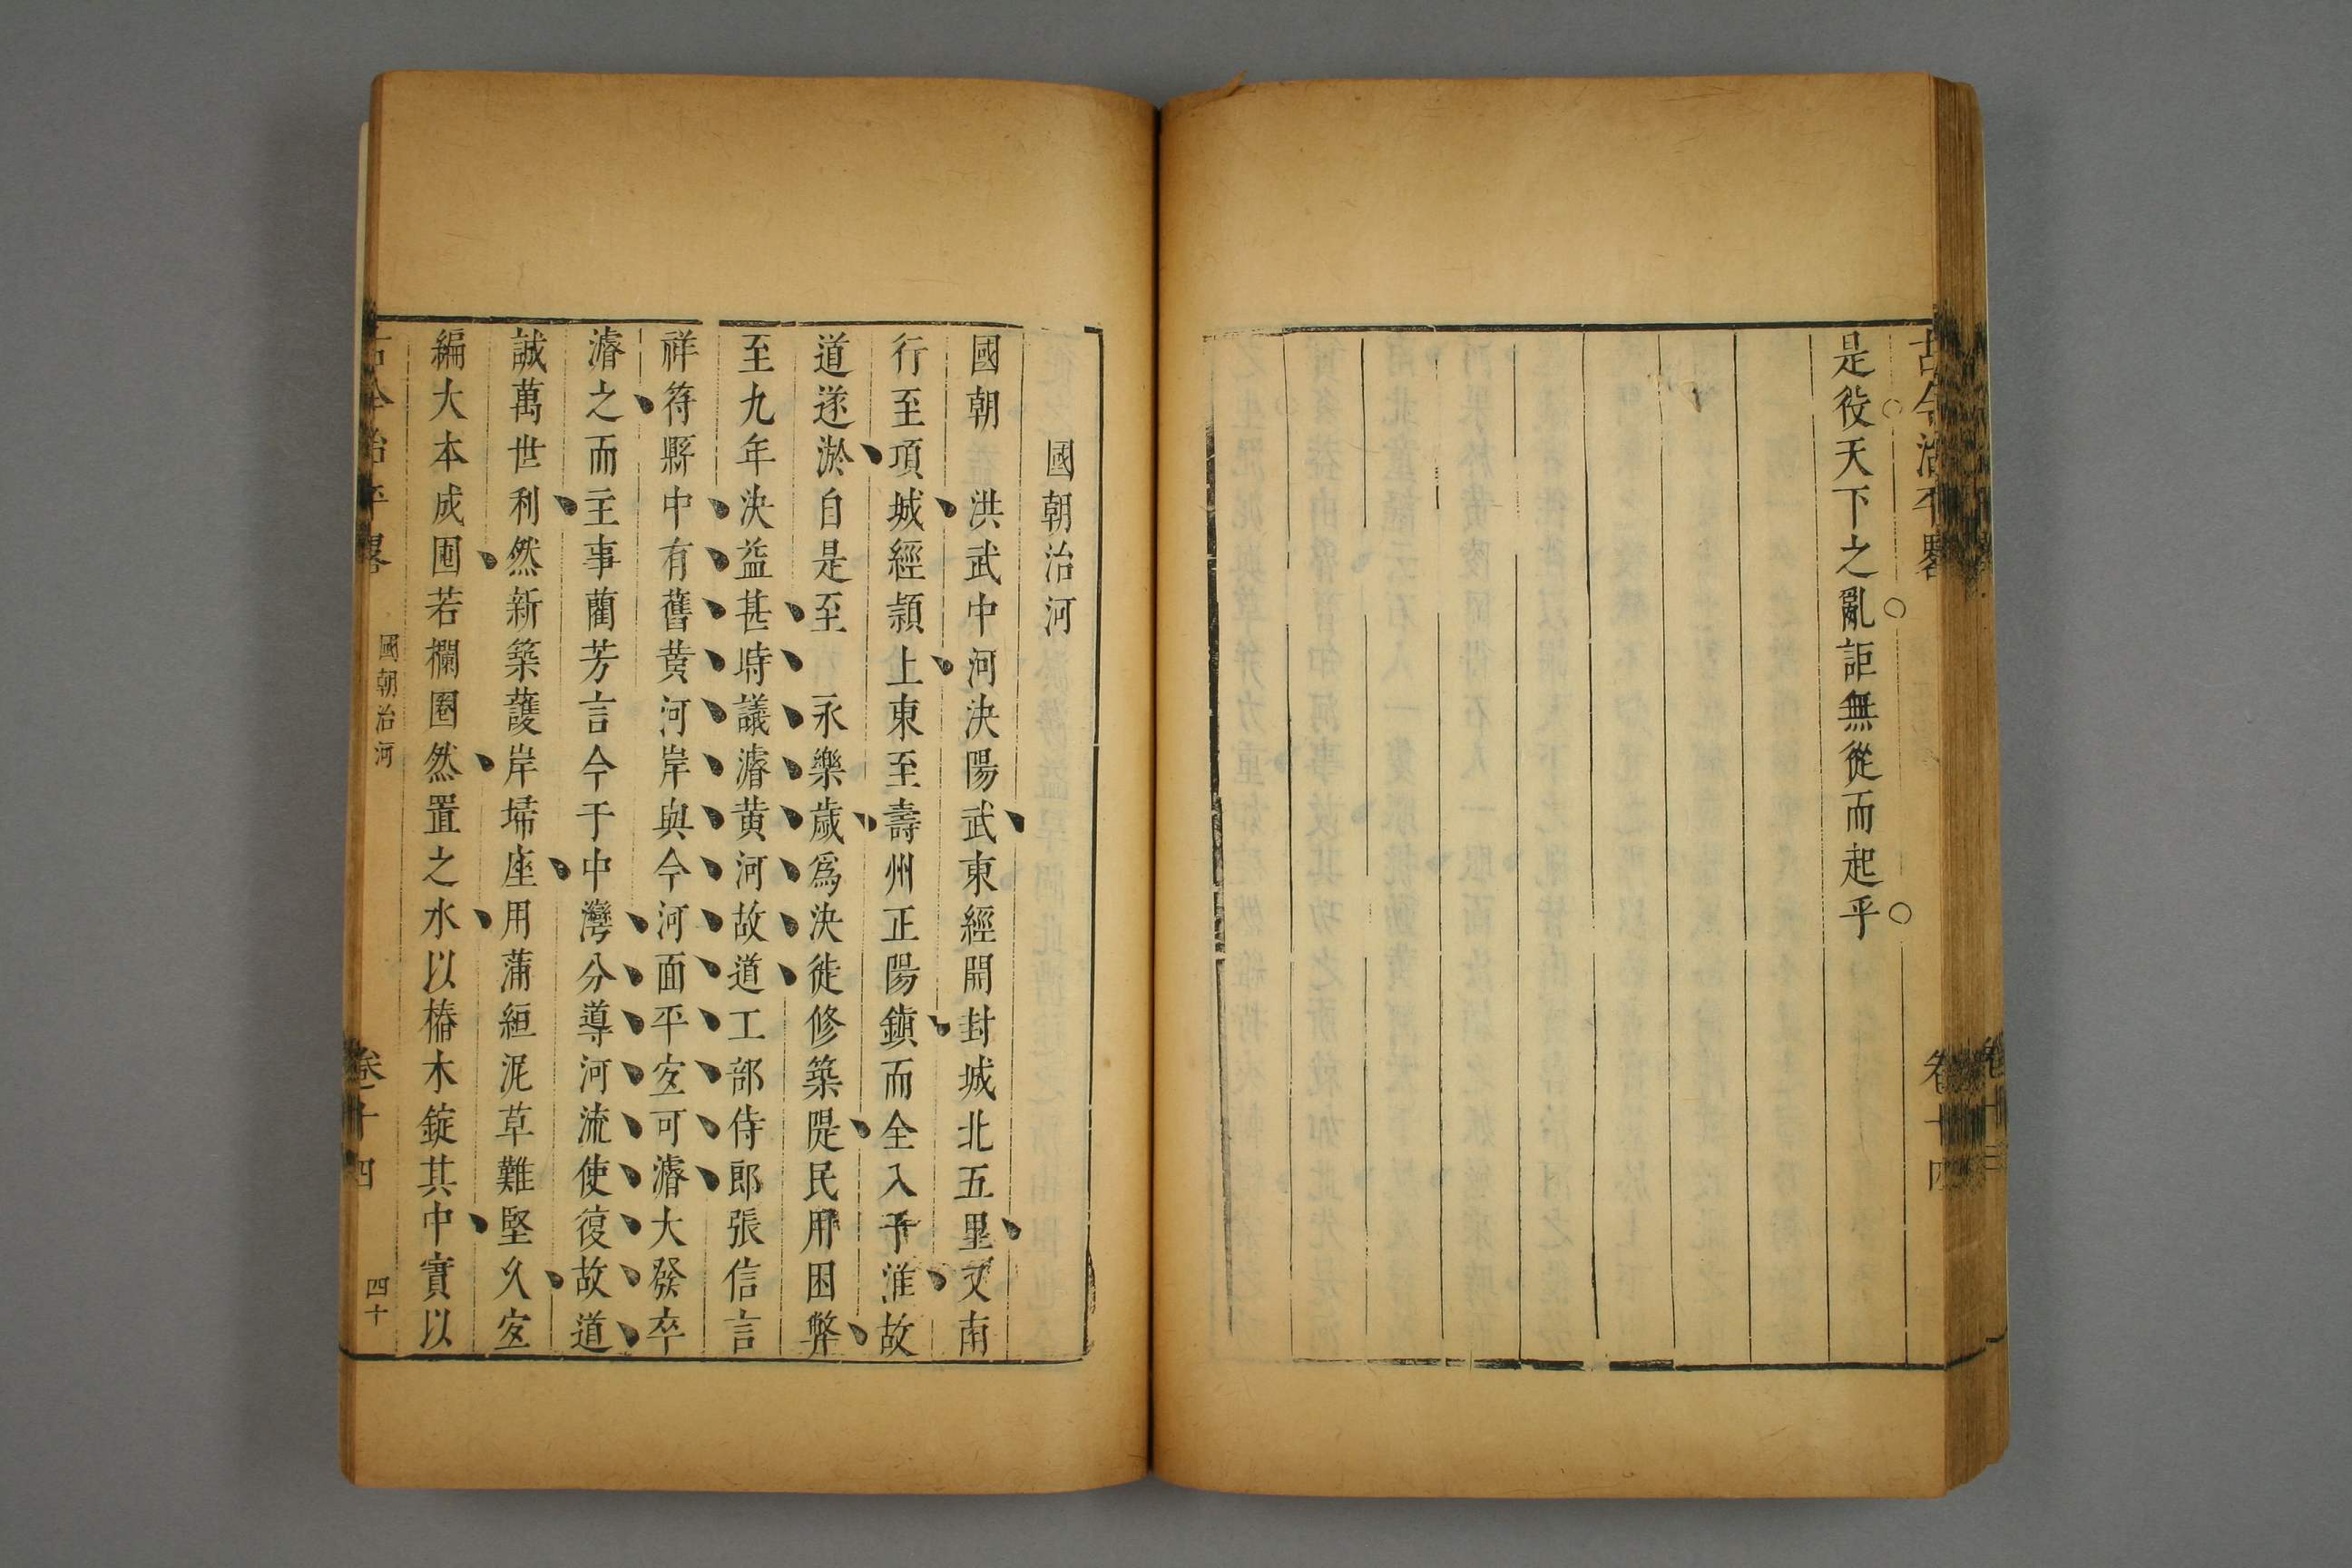 古今治平畧
卷十四
是役天下之亂詎無從而起乎
國朝治河
國朝 洪武中河決陽武東經開封城北五里又南
行至項城經潁上東至壽州正陽鎮而全入于淮故
道遂淤自是至 永樂歲為決徙修築隄民用困弊
至九年決益甚時議濬黃河故道工部侍郎張信言
祥符縣中有舊黃河岸與今河面平宜可濬大發卒
濬之而主事藺芳言今于中灣分導河流使復故道
誠萬世利然新築護岸埽座用蒲絙泥草難堅久宜
編大木成囤若欄圈然置之水以樁木錠其中實以
古今治平畧
國朝治河
卷十四
四十